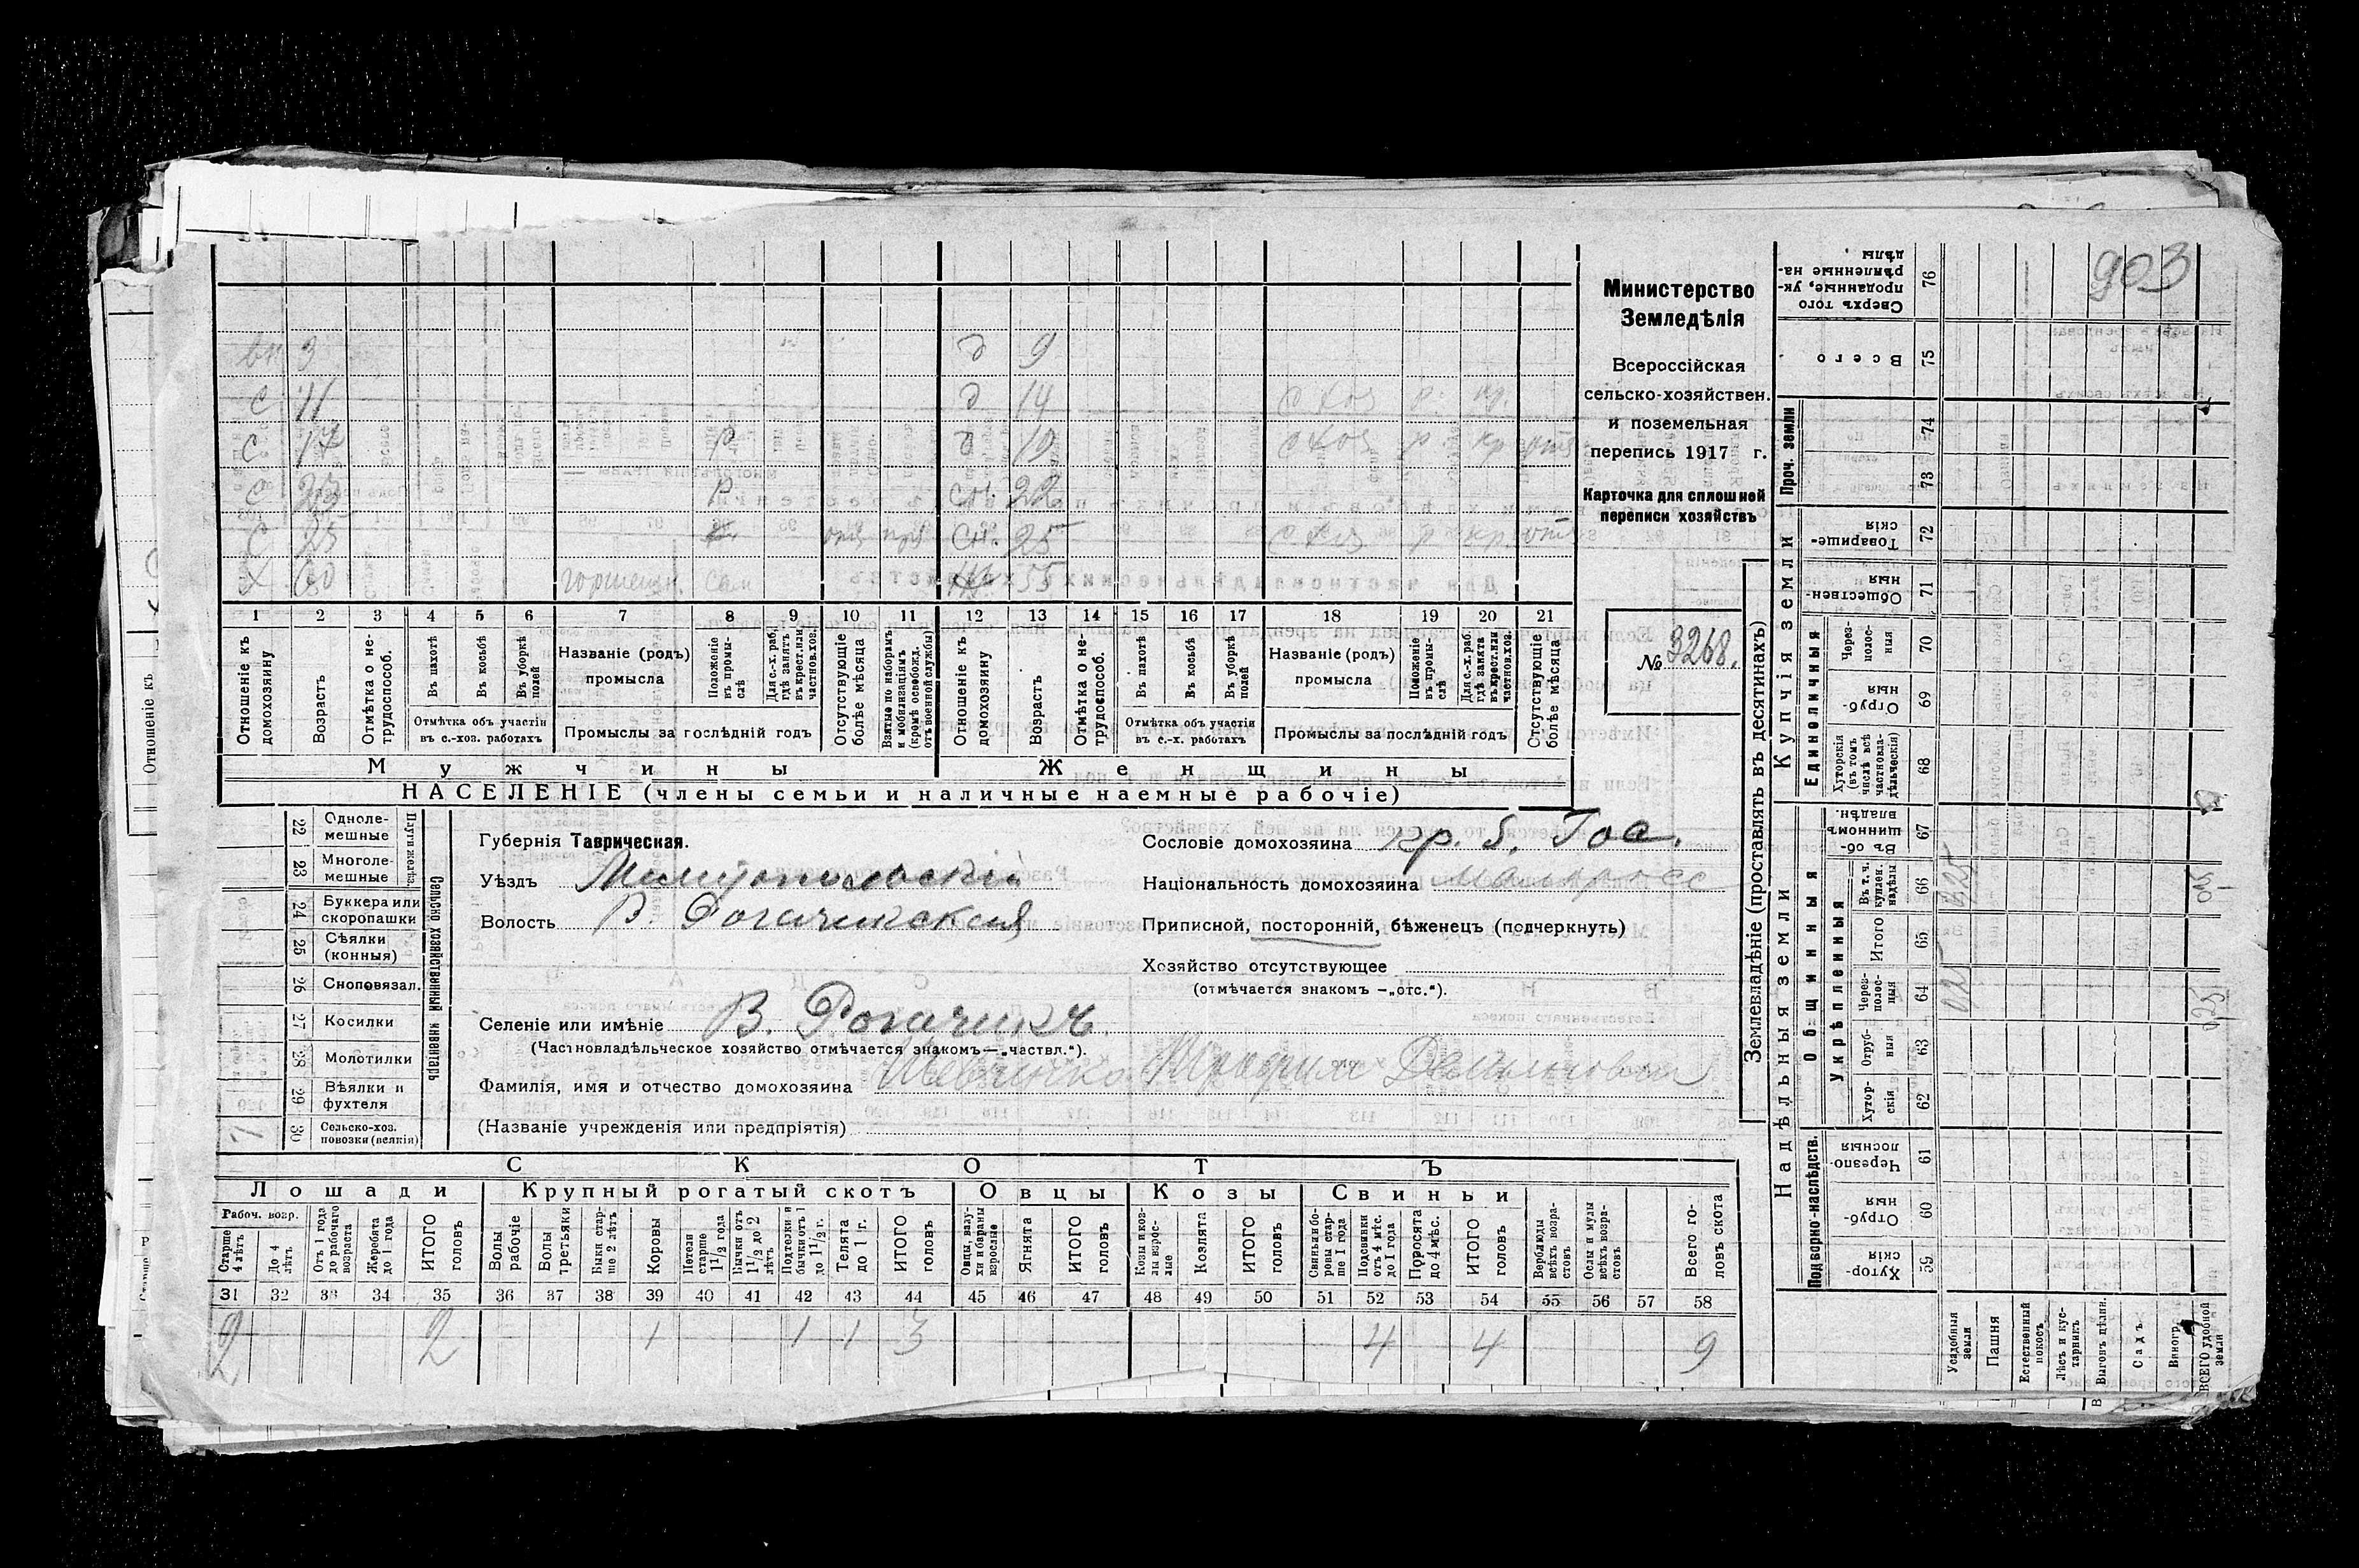 903
Министерство
Земледѣлія
Всероссійская
сельско-хозяйствен.
и поземельная
перепись 1917 г.
Карточка для сплошной
переписи хозяйствъ
№ 3268.
вн 3 д 9
с 11 д 14
с 17 Р д 19
с 23 Р сн. 22
с 25 сн. 25
х 60 55
1 2 3 4 5 6 7 8 9 10 11 12 13 14 15 16 17 18 19 20 21
Отношеніе къ домохозяину
Возрастъ
Отмѣтка о не-трудоспособ.
Въ пахотѣ
Въ косьбѣ
Въ уборкѣ полей
Отмѣтка объ участіи въ с.-хоз. работахъ
Названіе (родъ) промысла
Положеніе въ промы-слѣ
Для с.-х. раб. гдѣ занятъ въ крест. или частнов. хоз.
Промыслы за послѣдній годъ
Отсутствующіе болѣе мѣсяца
Взятые по наборамъ и мобилизаціямъ (кромѣ освобожд. отъ военной службы)
Отношеніе къ домохозяину
Возрастъ
Отмѣтка о не-трудоспособ.
Въ пахотѣ
Въ косьбѣ
Въ уборкѣ полей
Отмѣтка объ участіи въ с.-х. работахъ
Названіе (родъ) промысла
Положеніе въ промы-слѣ
Для с.-х. раб. гдѣ занята въ крест. или частнов. хоз.
Промыслы за послѣдній годъ
Отсутствующіе болѣе мѣсяца
Мужчины Женщины
НАСЕЛЕНІЕ (члены семьи и наличные наемные рабочіе)
Сельско-хозяйственный инвентарь
Плуги желѣз.
22 Одноле-мешные
23 Многоле-мешные
24 Буккера или скоропашки
25 Сѣялки (конныя)
26 Сноповязал.
27 Косилки
28 Молотилки
29 Вѣялки и фухтеля
30 Сельско-хоз. повозки (всякія) 1
Губернія Таврическая.
Уѣздъ Мелитопольскій
Волость В. Рогачикская
Селеніе или имѣніе В. Рогачикъ
(Частновладѣльческое хозяйство отмѣчается знакомъ—„частвл.“).
Фамилія, имя и отчество домохозяина Шевченко
(Названіе учрежденія или предпріятія)
Сословіе домохозяина кр. б. Гос.
Національность домохозяина Малоросс
Приписной, посторонній, бѣженецъ (подчеркнуть)
Хозяйство отсутствующее
(отмѣчается знакомъ —„отс.“).
СКОТЪ
Лошади Крупный рогатый скотъ Овцы Козы Свиньи
Рабоч. возр.
Старше 4 лѣтъ
До 4 лѣтъ
Отъ 1 года до рабочаго возраста
Жеребята до 1 года
ИТОГО головъ
Волы рабочіе
Волы третьяки
Быки стар-ше 2 лѣтъ
Коровы
Нетели старше 1 1/2 года
Бычки отъ 1 1/2 до 2 лѣтъ
Подтелки и бычки отъ 1 до 1 1/2 г.
Телята до 1 г.
ИТОГО головъ
Овцы, валу-хи и бараны взрослые
Ягнята
ИТОГО головъ
Козы и коз-лы взрос-лые
Козлята
ИТОГО головъ
Свиньи и бо-ровы стар-ше 1 года
Подсвинки отъ 4 мѣс. до 1 года
Поросята до 4 мѣс.
ИТОГО головъ
Верблюды всѣхъ возра-стовъ
Ослы и мулы всѣхъ возра-стовъ
Всего го-ловъ скота
31 32 33 34 35 36 37 38 39 40 41 42 43 44 45 46 47 48 49 50 51 52 53 54 55 56 57 58
2 2 1 1 1 3 4 4 9
Землевладѣніе (проставлять въ десятинахъ)
Надѣльныя земли Купчія земли
Подворно-наслѣдств.
Общинныя
Укрѣпленныя
Единоличныя
Проч. земли
Хутор-скія 59
Отруб-ныя 60
Черезпо-лосныя 61
Хутор-скія 62
Отруб-ныя 63
Через-полос-ныя 64
Итого 65
Въ т. ч. куплен. надѣлы 66
Въ об-щинномъ владѣн. 67
Хуторскія (въ томъ числѣ всѣ частновла-дѣльческія) 68
Отруб-ныя 69
Через-полос-ныя 70
Обществен-ныя 71
Товарище-скія 72
73
74
Всего 75
Сверхъ того проданные, ук-рѣпленные на-дѣлы 76
Усадебныя земли
Пашня
Естественный покосъ
Лѣсъ и кус-тарникъ
Выгонъ цѣлин.
Садъ
Виногр.
ВСЕГО удобной земли